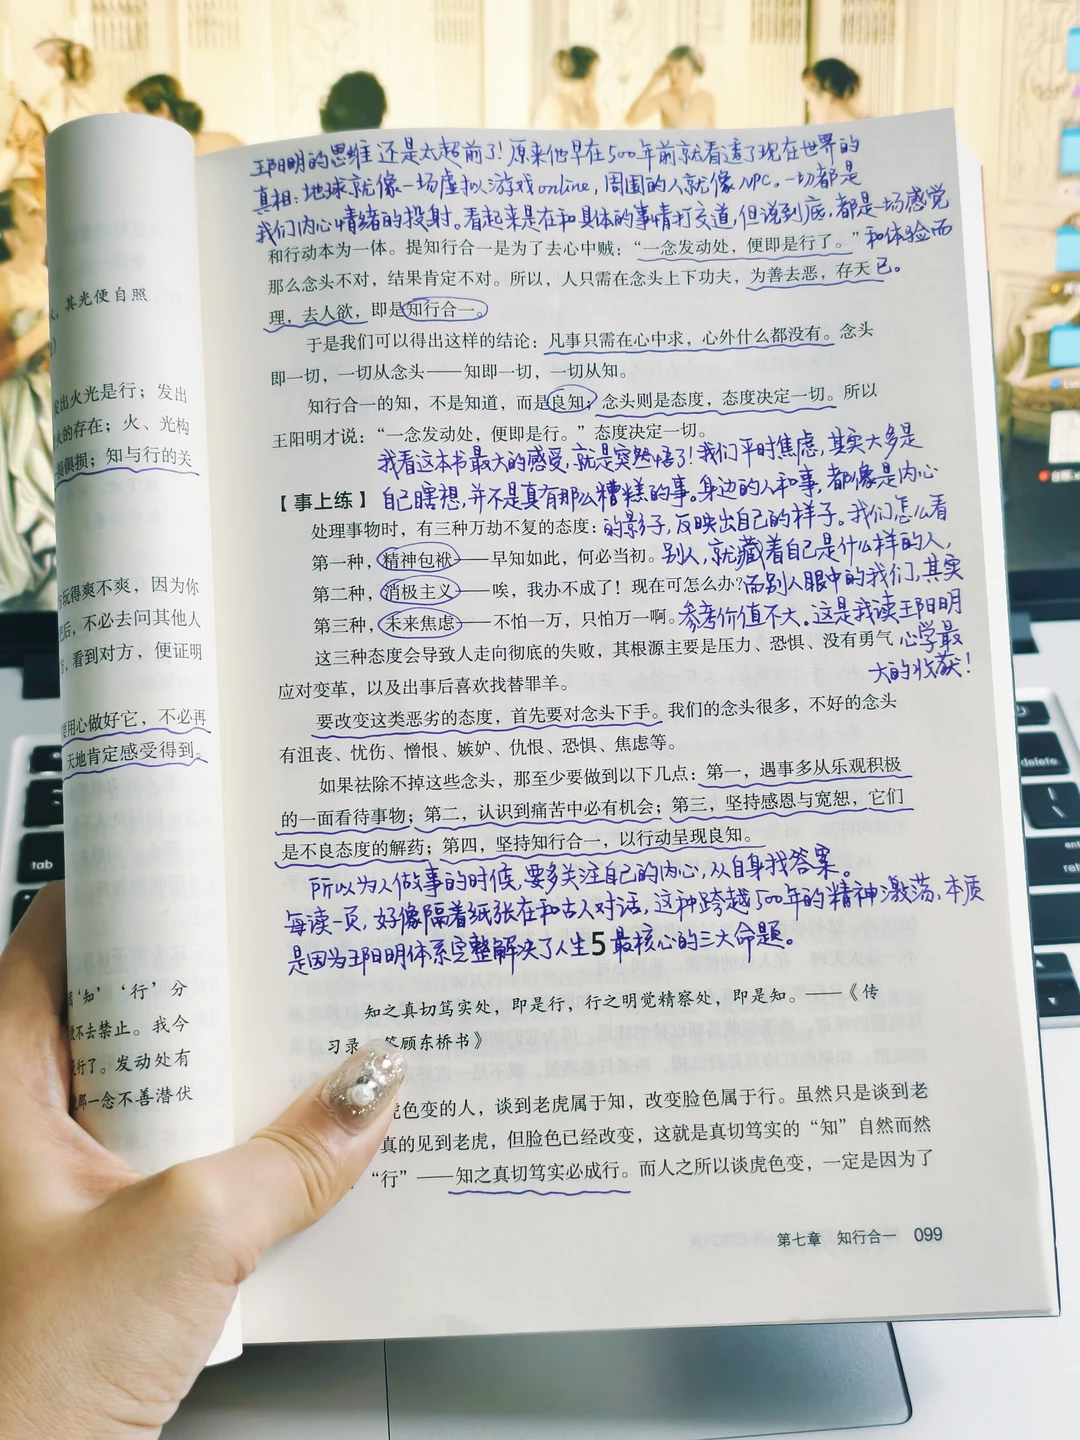 其光便自照
发出火光是行；发出
火的存在；火、光构
损俱损；知与行的关
玩得爽不爽，因为你
把后，不必去问其他人
看到对方，便证明
要用心做好它，不必再
天地肯定感受得到。
‘知’‘行’分
不去禁止。我今
是行了。发动处有
那一念不善潜伏
王阳明的思维还是太超前了！原来他早在500年前就看透了现在世界的
真相：地球就像一场虚拟游戏online，周围的人就像NPC。一切都是
我们内心情绪的投射。看起来是在和具体的事情打交道，但说到底，都是一场感觉
和体验而
已。
和行动本为一体。提知行合一是为了去心中贼：“一念发动处，便即是行了。”
那么念头不对，结果肯定不对。所以，人只需在念头上下功夫，为善去恶，存天
理，去人欲，即是知行合一。
于是我们可以得出这样的结论：凡事只需在心中求，心外什么都没有。念头
即一切，一切从念头——知即一切，一切从知。
知行合一的知，不是知道，而是良知；念头则是态度，态度决定一切。所以
王阳明才说：“一念发动处，便即是行。”态度决定一切。
我看这本书最大的感受，就是突然悟了！我们平时焦虑，其实大多是
自己瞎想，并不是真有那么糟糕的事。身边的人和事，都像是内心
的影子，反映出自己的样子。我们怎么看
别人，就藏着自己是什么样的人，
而别人眼中的我们，其实
参考价值不大。这是我读王阳明
心学最
大的收获！
【事上练】
处理事物时，有三种万劫不复的态度：
第一种，精神包袱——早知如此，何必当初。
第二种，消极主义——唉，我办不成了！现在可怎么办？
第三种，未来焦虑——不怕一万，只怕万一啊。
这三种态度会导致人走向彻底的失败，其根源主要是压力、恐惧、没有勇气
应对变革，以及出事后喜欢找替罪羊。
要改变这类恶劣的态度，首先要对念头下手。我们的念头很多，不好的念头
有沮丧、忧伤、憎恨、嫉妒、仇恨、恐惧、焦虑等。
如果祛除不掉这些念头，那至少要做到以下几点：第一，遇事多从乐观积极
的一面看待事物；第二，认识到痛苦中必有机会；第三，坚持感恩与宽恕，它们
是不良态度的解药；第四，坚持知行合一，以行动呈现良知。
所以为人做事的时候，要多关注自己的内心，从自身找答案。
每读一页，好像隔着纸张在和古人对话，这种跨越500年的精神激荡，本质
是因为王阳明体系完整解决了人生5最核心的三大命题。
知之真切笃实处，即是行，行之明觉精察处，即是知。——《传
习录 答顾东桥书》
虎色变的人，谈到老虎属于知，改变脸色属于行。虽然只是谈到老
真的见到老虎，但脸色已经改变，这就是真切笃实的“知”自然而然
“行”——知之真切笃实必成行。而人之所以谈虎色变，一定是因为了
第七章 知行合一 099
tab
delete